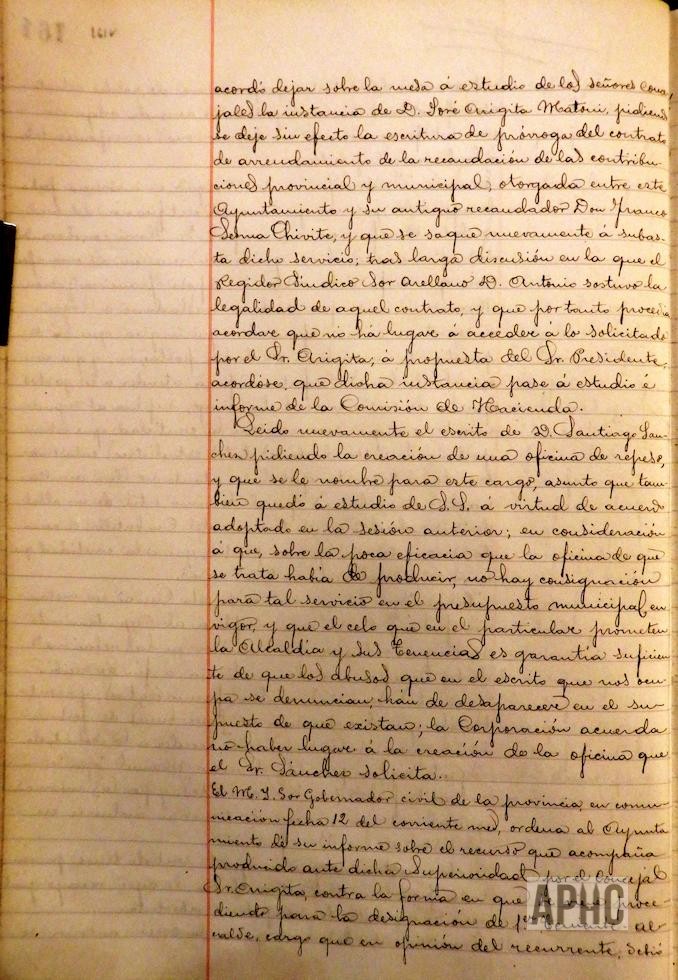 acordó dejar sobre la mesa á estudio de los señores Conce-
jales la instancia de D. José Arigita Matoni, pidiendo
se deje sin efecto la escritura de prórroga del contrato
de arrendamiento de la recaudación de las contribu-
ciones provincial y municipal, otorgada entre este
Ayuntamiento y su antiguo recaudador Don Franco
Sesma Chivite, y que se saque nuevamente á subas-
ta dicho servicio; tras larga discusión en la que el
Regidor Síndico Sor Arellano D. Antonio sostuvo la
legalidad de aquel contrato, y que por tanto procedía
acordar que no há lugar á acceder á lo solicitado
por el Sr. Arigita; á propuesta del Sr. Presidente,
acordóse, que dicha instancia pase á estudio é
informe de la Comisión de Hacienda.
Leido nuevamente el escrito de D. Santiago San-
chez pidiendo la creación de una oficina de repeso,
y que se le nombre para este cargo, asunto que tam-
bien quedó á estudio de S.S. á virtud de acuerdo
adoptado en la sesión anterior; en consideración
á que, sobre la poca eficacia que la oficina de que
se trata había de producir, no hay consignación
para tal servicio en el presupuesto municipal en
vigor, y que el celo que en el particular prometen
la Alcaldía y sus Tenencias es garantía suficien
te de que los abusos que en el escrito que nos ocu-
pa se denuncian, hán de desaparecer en el su-
puesto de que existan; la Corporación acuerda
no haber lugar á la creación de la oficina que
el Sr. Sánchez solicita.
El M. I. Sor Gobernador civil de la provincia, en comu-
nicación fecha 12 del corriente mes, ordena al Ayunta
miento dé su informe sobre el recurso que acompaña
producido ante dicha Superioridad por el Concejal
Sr. Arigita, contra la forma en que proce-
diendo para la designación de 1er teniente al-
calde, cargo que en opinión del recurrente, debió
APHC